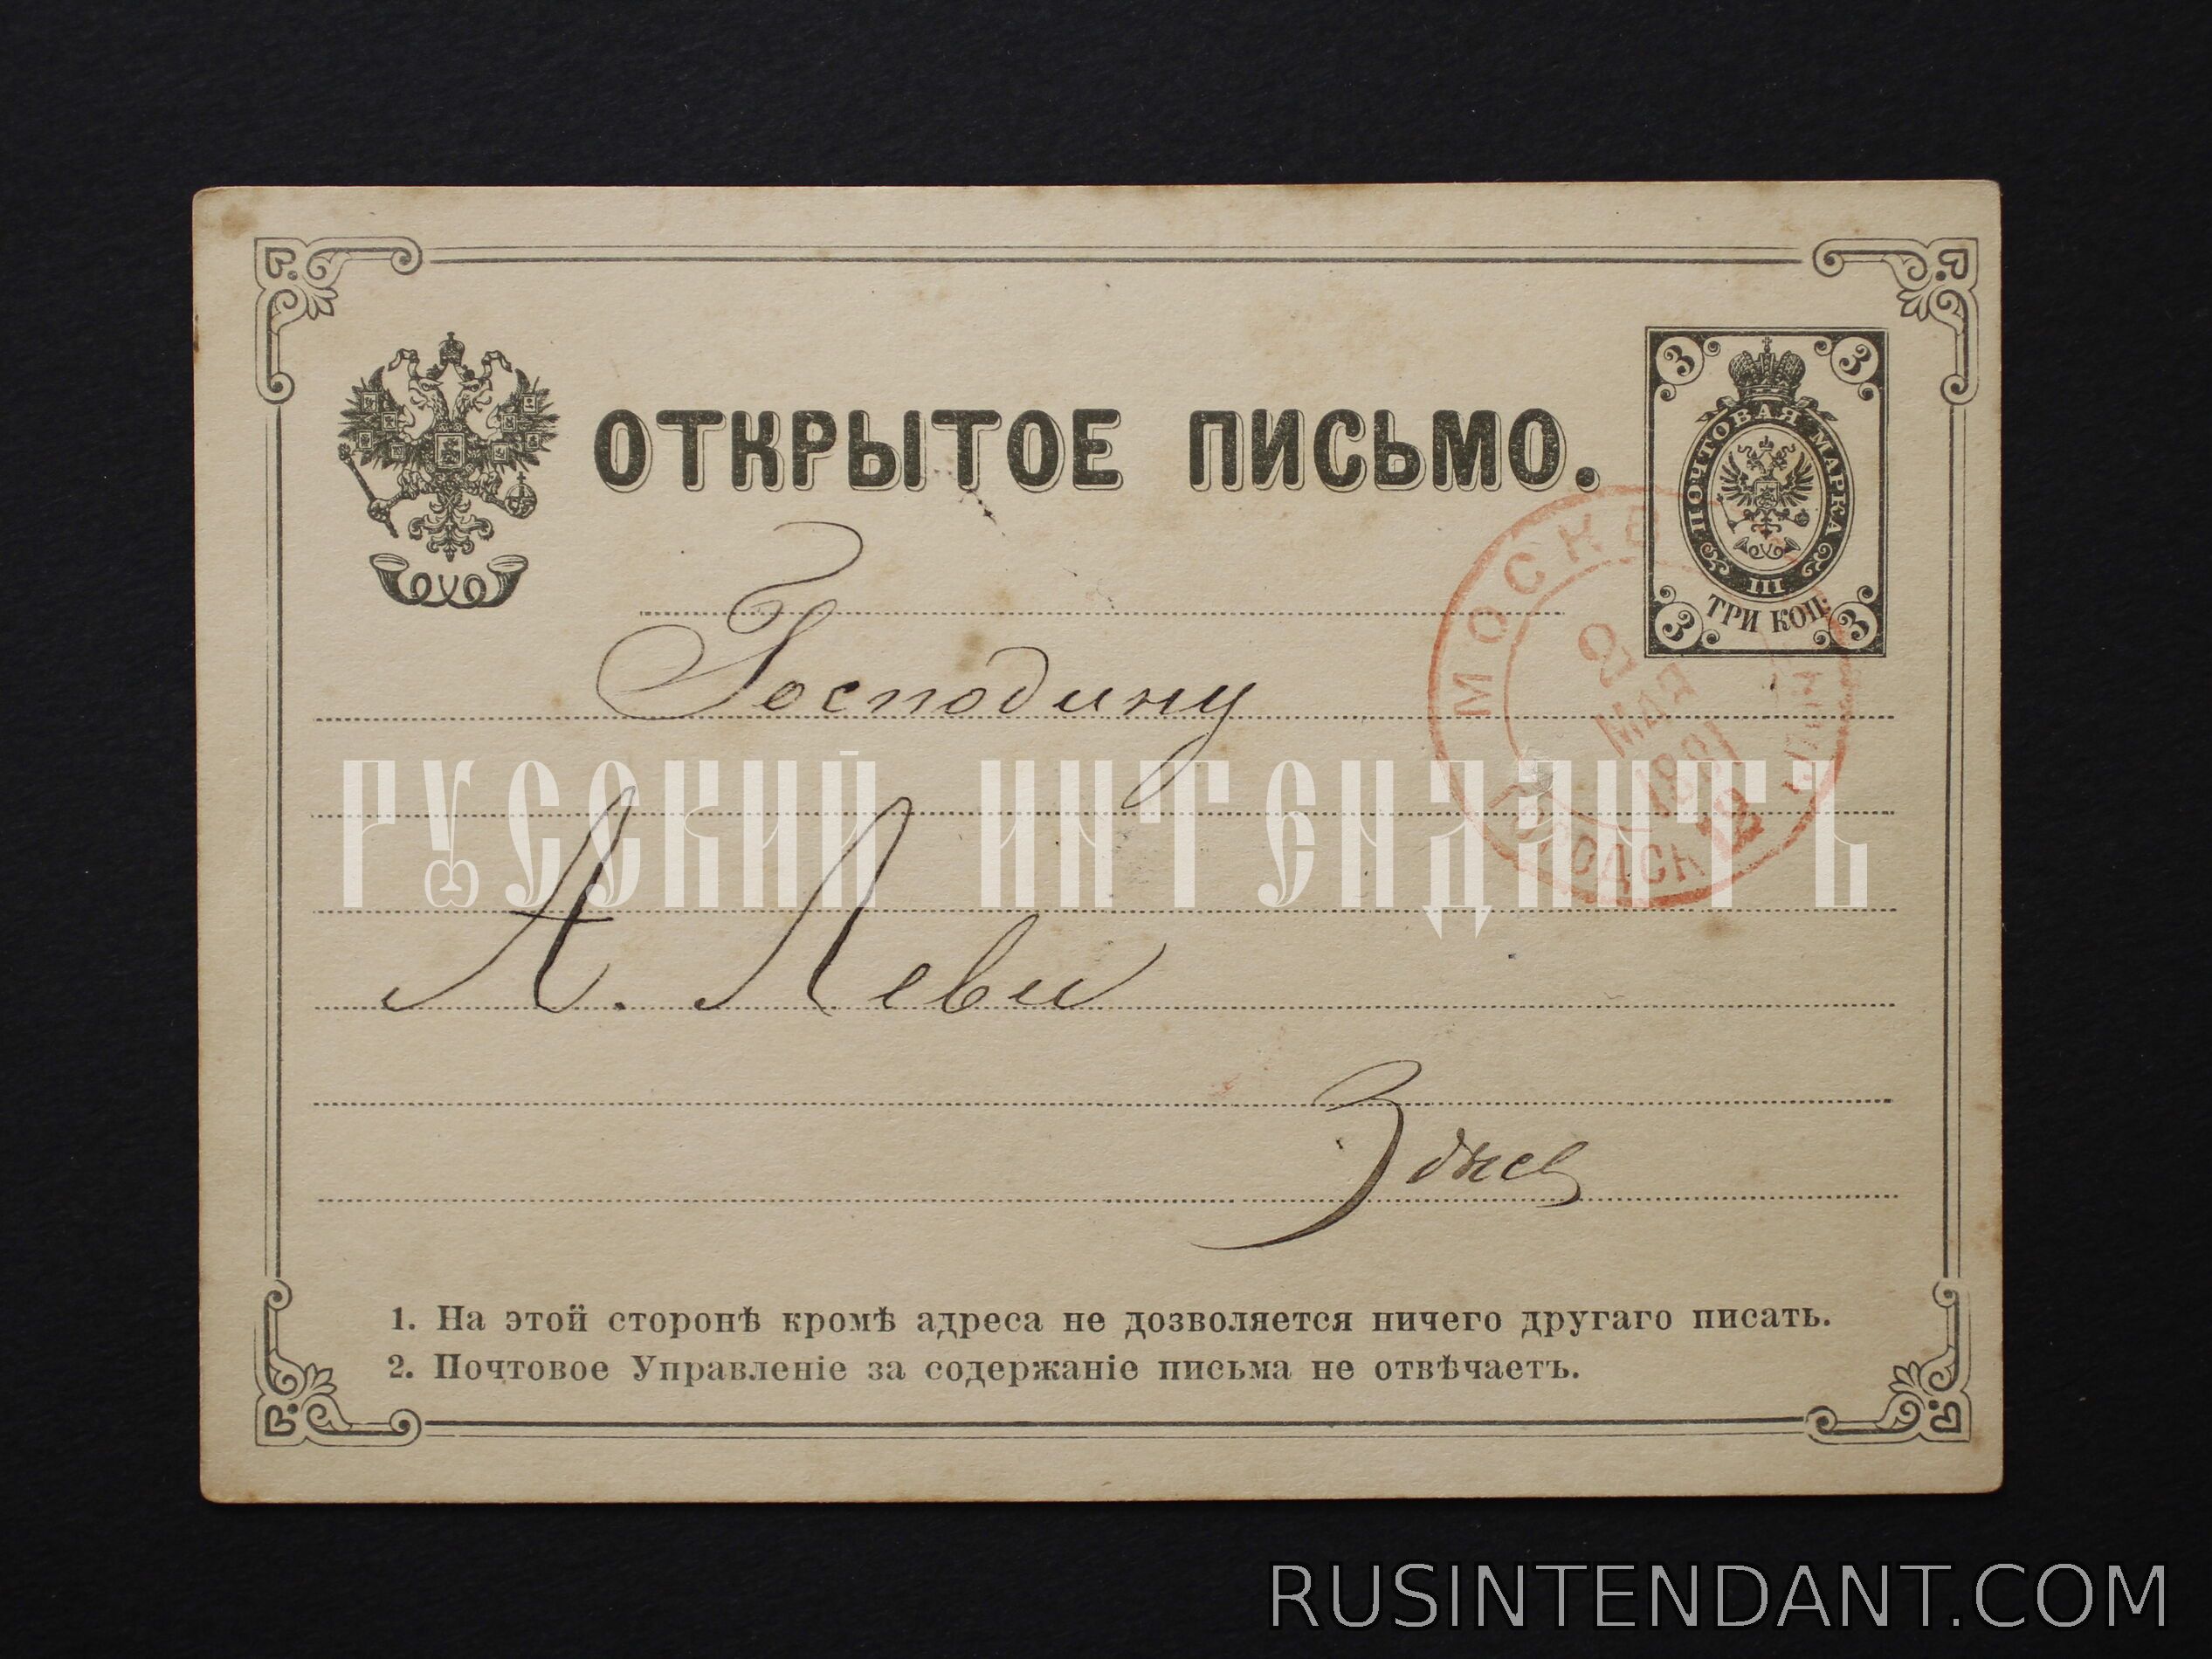 ОТКРЫТОЕ ПИСЬМО.
3 3
ПОЧТОВАЯ МАРКА
III
ТРИ КОП.
3 3
МОСКВА
2 МАЯ 1881
Господину
РУССКИЙ ИНТЕНДАНТЪ
А. Леви
Здѣсь
1. На этой сторонѣ кромѣ адреса не дозволяется ничего другаго писать.
2. Почтовое Управленіе за содержаніе письма не отвѣчаетъ.
RUSINTENDANT.COM